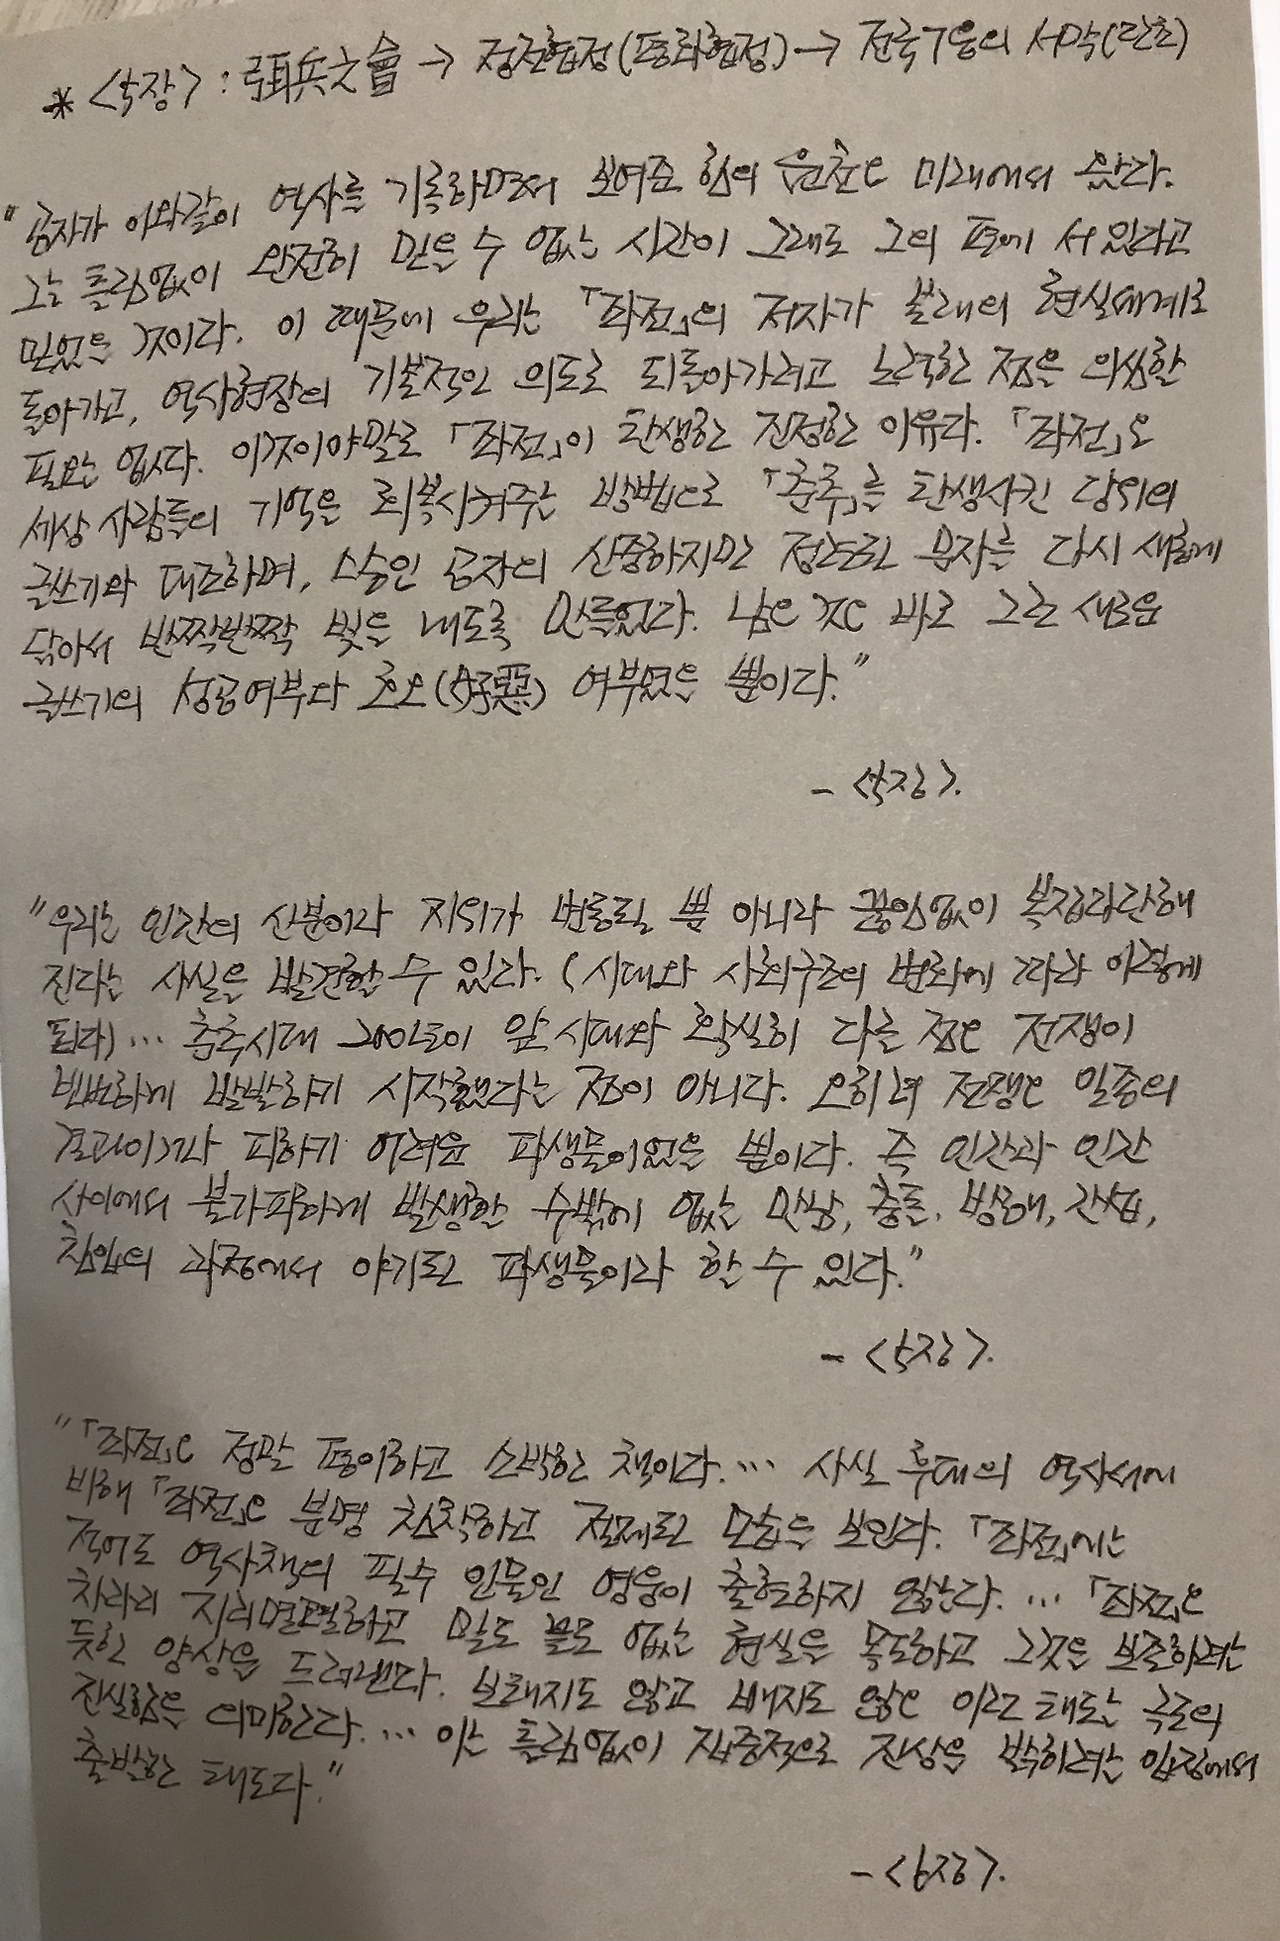 * <5장> : 弭兵之會 → 정전협정(평화협정) → 전국7웅의 서막(단초)
"공자가 이와같이 역사를 기록하면서 보여준 힘의 원천은 미래에서 왔다.
그는 틀림없이 완전히 믿을 수 없는 시간이 그래도 그의 편에 서 있다고
믿었을 것이다. 이 때문에 우리는 「좌전」의 저자가 본래의 현실세계로
돌아가고, 역사현장의 기본적인 의도로 되돌아가려고 노력한 점을 의심할
필요는 없다. 이것이야말로 「좌전」이 탄생한 진정한 이유다. 「좌전」은
세상 사람들의 기억을 회복시켜주는 방법으로 「춘추」를 탄생시킨 당위의
글쓰기와 대조하며, 스승인 공자의 신중하지만 정돈된 문자를 다시 새롭게
닦아서 반짝반짝 빛을 내도록 만들었다. 남은 것은 바로 그런 새로운
글쓰기의 성공여부다 호오(好惡) 여부였을 뿐이다."
- <5장>.
"우리는 인간의 신분이라 지위가 변동될 뿐 아니라 끊임없이 복잡다단해
진다는 사실을 발견할 수 있다. (시대와 사회구조의 변화에 따라 이렇게
된다) … 춘추시대 200년이 앞 시대와 확실히 다른 점은 전쟁이
빈번하게 발발하기 시작했다는 점이 아니다. 오히려 전쟁은 일종의
결과이거나 피하기 어려운 파생물이었을 뿐이다. 즉 인간과 인간
사이에서 불가피하게 발생할 수밖에 없는 만남, 충돌, 방해, 간섭,
침입의 과정에서 야기된 파생물이라 할 수 있다."
- <5장>.
"「좌전」은 정말 평이하고 소박한 책이다. … 사실 후대의 역사서에
비해 「좌전」은 분명 침착하고 절제된 모습을 보인다. 「좌전」에는
적어도 역사책의 필수 인물인 영웅이 출현하지 않는다. … 「좌전」은
차라리 지리멸렬하고 말도 별로 없는 현실을 목도하고 그것을 보존하려는
듯한 양상을 드러낸다. 보태지도 않고 빼지도 않은 이런 태도는 극도의
진실함을 의미한다. … 이는 틀림없이 집중적으로 진상을 밝히려는 입장에서
출발한 태도다."
- <6장>.